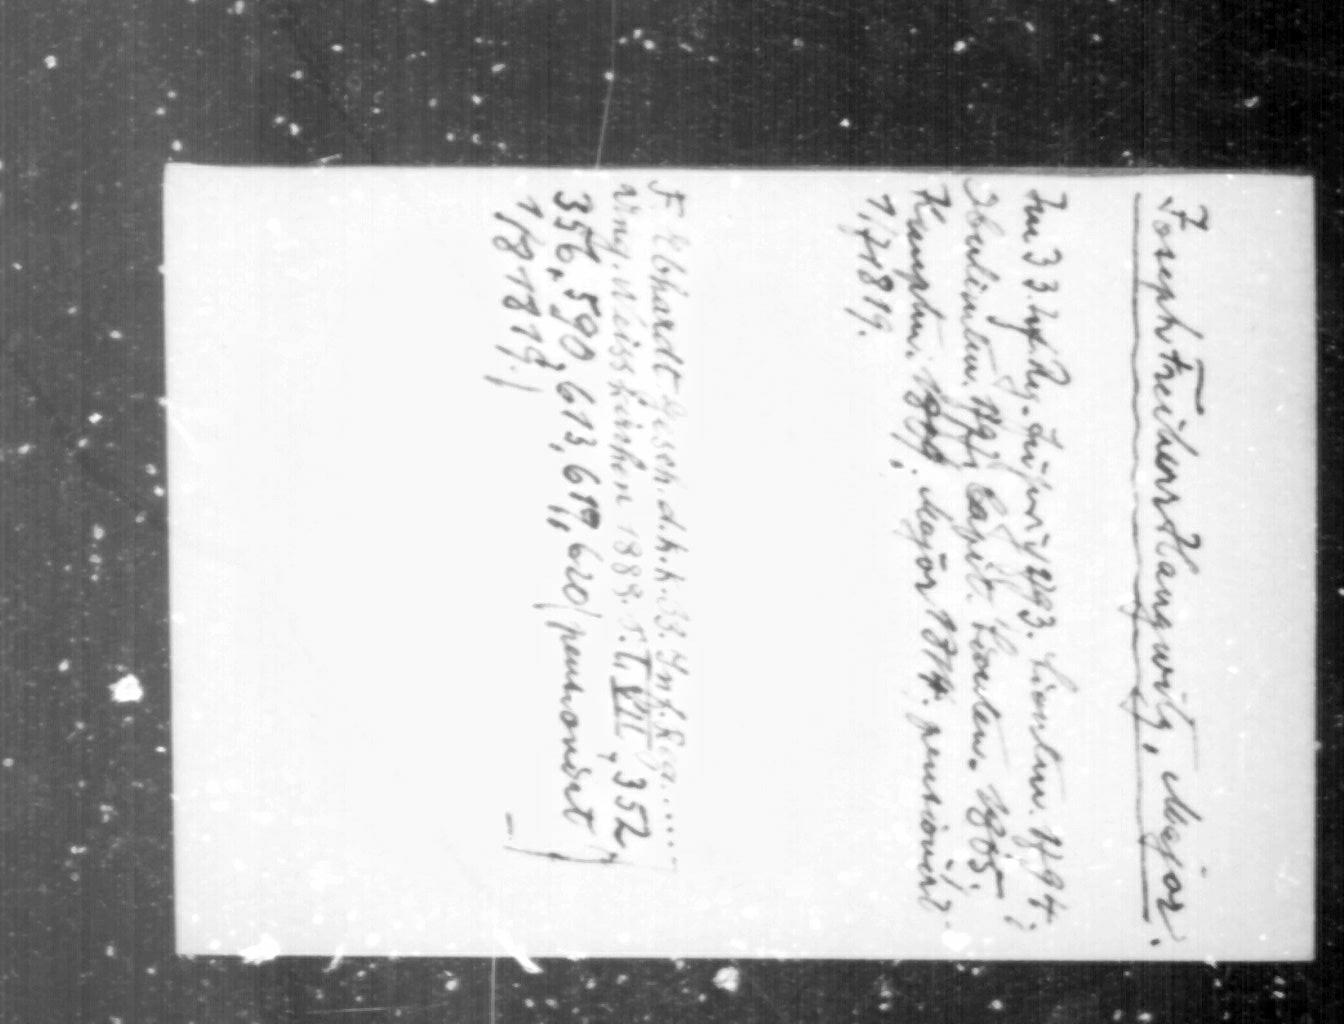 Joseph Freiherr Haugwitz, Major.
Im 33. Inf. Rg. 1793. Lieuten. 1794;
Oberlieuten. Capit. Lieuten. 1805;
Hauptm. 1809; Major 1814. pensioniert
1/7 1819.
F. Ebhardt Gesch. d. k. k. 33. Inf. Reg. ....
Ung. Weisskirchen 1888. S. T. VII, 352,
356, 590, 613, 617, 620 / pensioniert
1/8 1819./